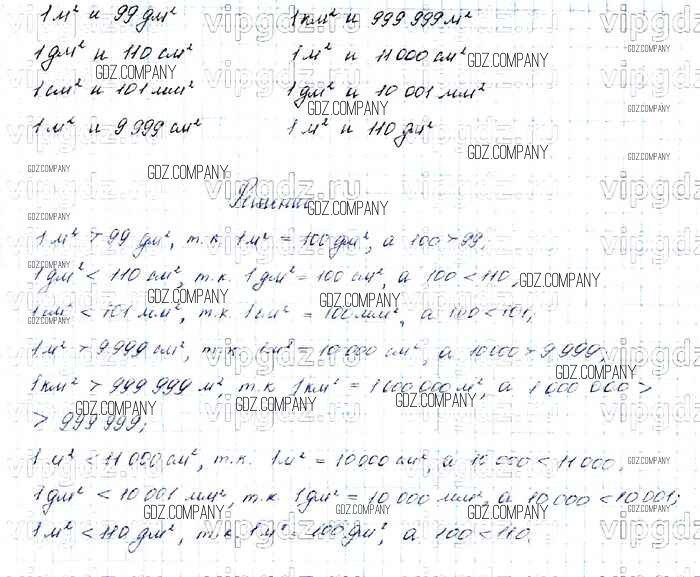 1 м² и 99 дм² 1 км² и 999 999 м²
1 дм² и 110 см² 1 м² и 11 000 см²
1 см² и 101 мм² 1 дм² и 10 001 мм²
1 м² и 9 999 см² 1 м² и 110 дм²
Решение
1 м² > 99 дм², т.к. 1 м² = 100 дм², а 100 > 99;
1 дм² < 110 см², т.к. 1 дм² = 100 см², а 100 < 110;
1 см² < 101 мм², т.к. 1 см² = 100 мм², а 100 < 101;
1 м² > 9 999 см², т.к. 1 м² = 10 000 см², а 10 000 > 9 999;
1 км² > 999 999 м², т.к 1 км² = 1 000 000 м², а 1 000 000 >
> 999 999;
1 м² < 11 000 см², т.к. 1 м² = 10 000 см², а 10 000 < 11 000;
1 дм² < 10 001 мм², т.к 1 дм² = 10 000 мм², а 10 000 < 10 001;
1 м² < 110 дм², т.к 1 м² = 100 дм², а 100 < 110.
GDZ.COMPANY
vipgdz.ru